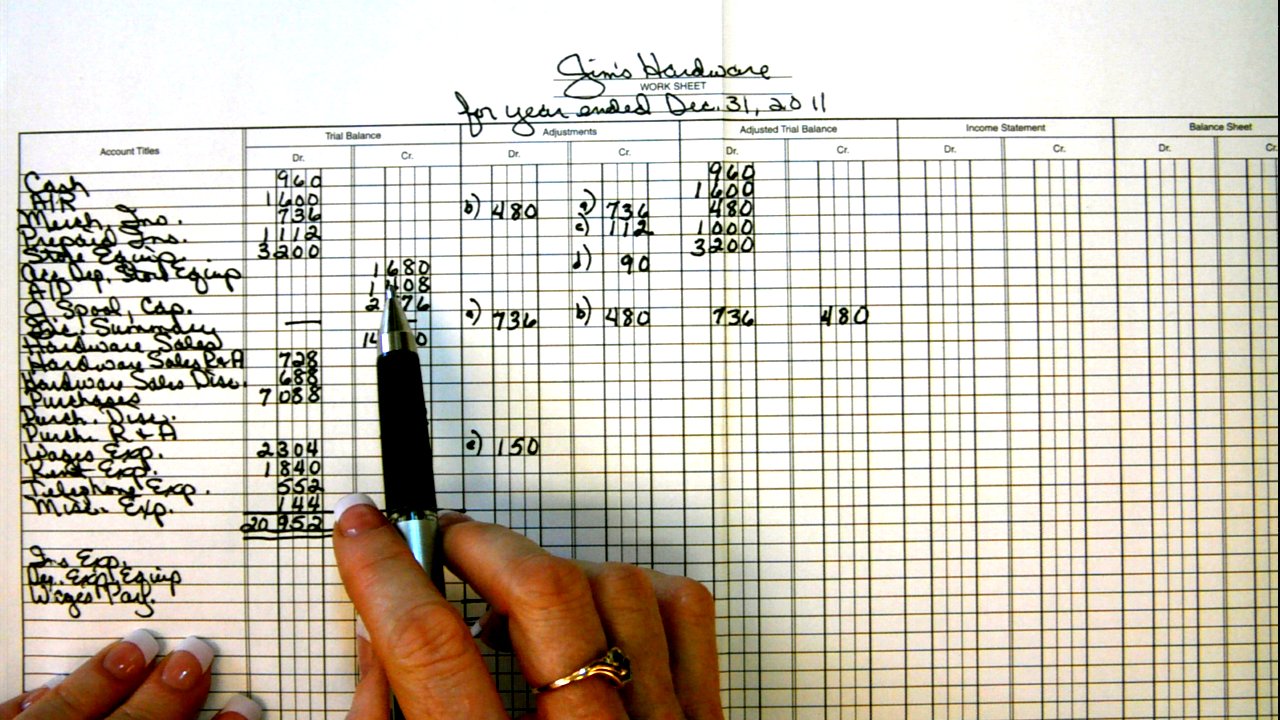 Jim's Hardware
WORK SHEET
for year ended Dec. 31, 2011
Account Titles Trial Balance Adjustments Adjusted Trial Balance Income Statement Balance Sheet
Dr. Cr. Dr. Cr. Dr. Cr. Dr. Cr. Dr. Cr.
Cash 960 960
A/R 1600 1600
Merch. Ins. 736 b) 480 a) 736 480
Prepaid Ins. 1112 c) 112 1000
Store Equip. 3200 3200
Acc. Dep. Store Equip 1680 d) 90
A/P 1408
J. Spool, Cap. 2 76
Inc. Summary — a) 736 b) 480 736 480
Hardware Sales 14 0
Hardware Sales R+A 728
Hardware Sales Disc. 688
Purchases 7088
Purch. Disc.
Purch. R+A
Wages Exp. 2304 e) 150
Rent Exp. 1840
Telephone Exp. 552
Misc. Exp. 144
20 952
Ins Exp.
Dep. Exp. Equip
Wages Pay.